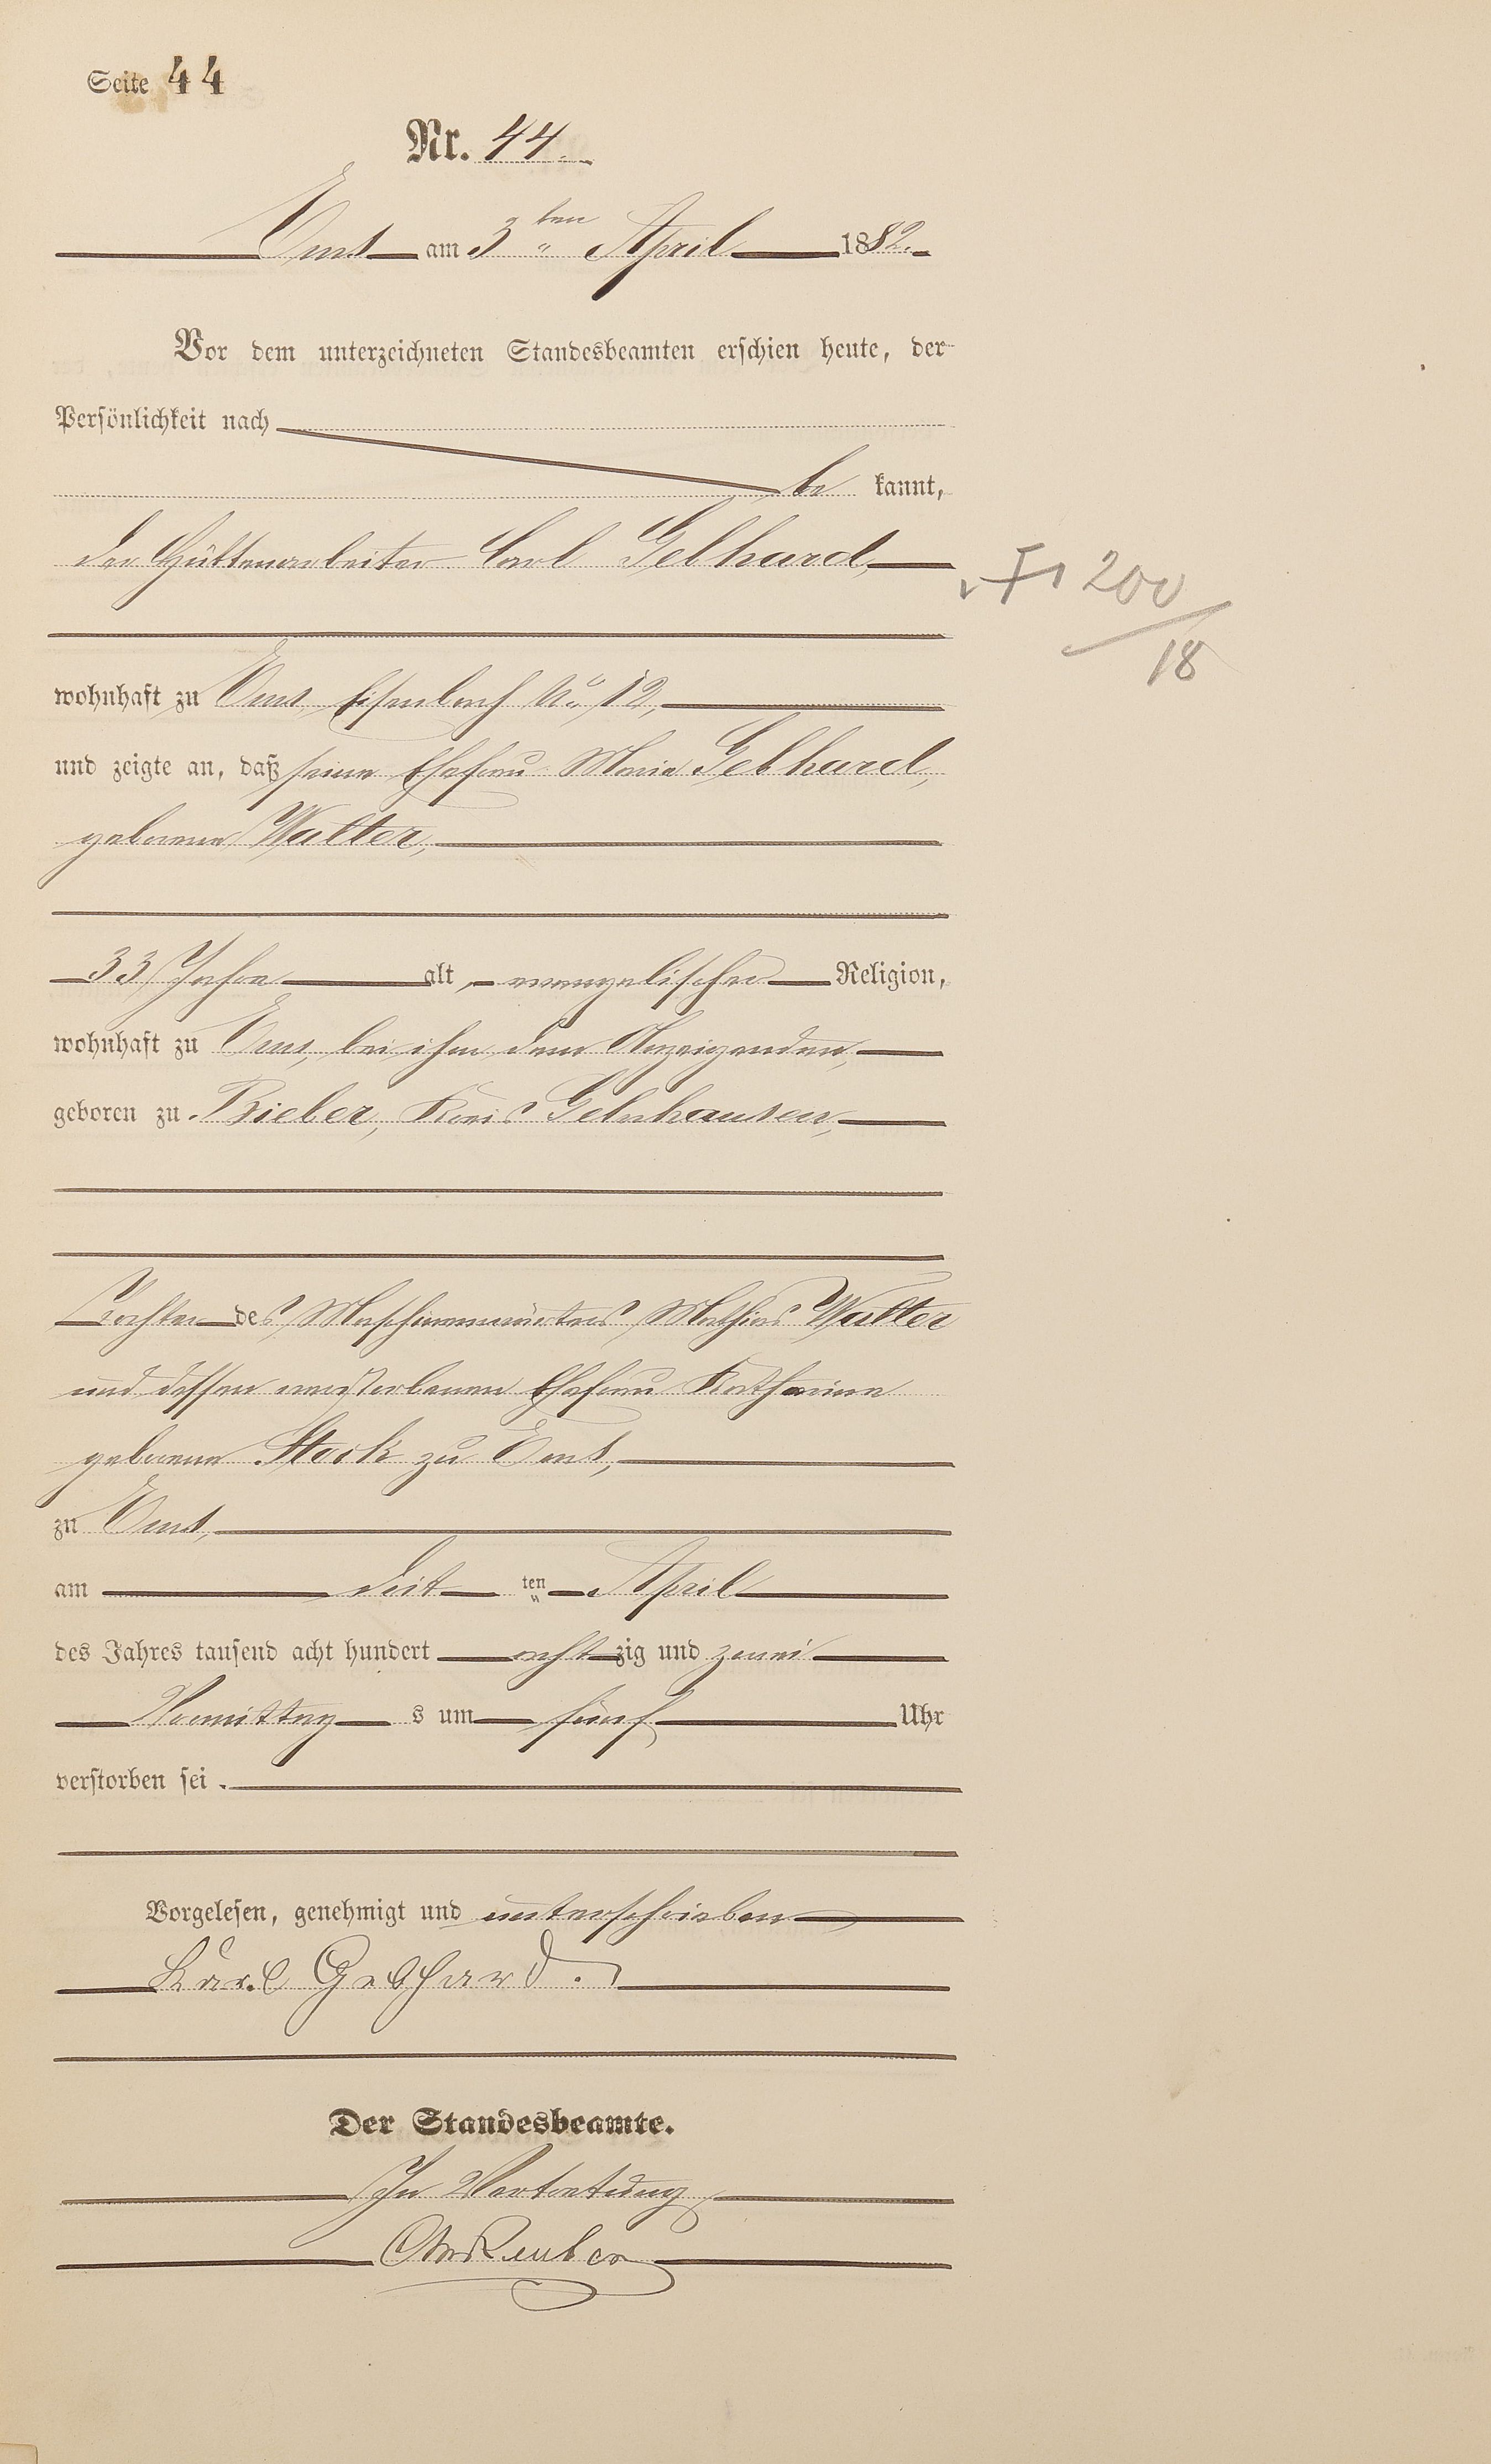 Seite 44
Nr. 44.
Ems am 3ten April 1882.
Vor dem unterzeichneten Standesbeamten erschien heute, der
Persönlichkeit nach
be kannt,
der Hüttenarbeiter Carl Gebhard,
200
18
wohnhaft zu Ems, Eisenbach No 12,
und zeigte an, daß seine Ehefrau Maria Gebhard,
geborene Walter,
33 Jahre alt, evangelischer Religion,
wohnhaft zu Ems, bei ihm dem Anzeigenden,
geboren zu Bieber, Kreis Gelnhausen,
Tochter des Maschinenwärters Mathias Walter
und dessen verstorbenen Ehefrau Katharina
geborene Stock zu Ems,
zu Ems,
am drit ten April
des Jahres tausend acht hundert acht zig und zwei
Vormittag s um fünf Uhr
verstorben sei.
Vorgelesen, genehmigt und unterschrieben
Karl Gebhard.
Der Standesbeamte.
In Vertretung